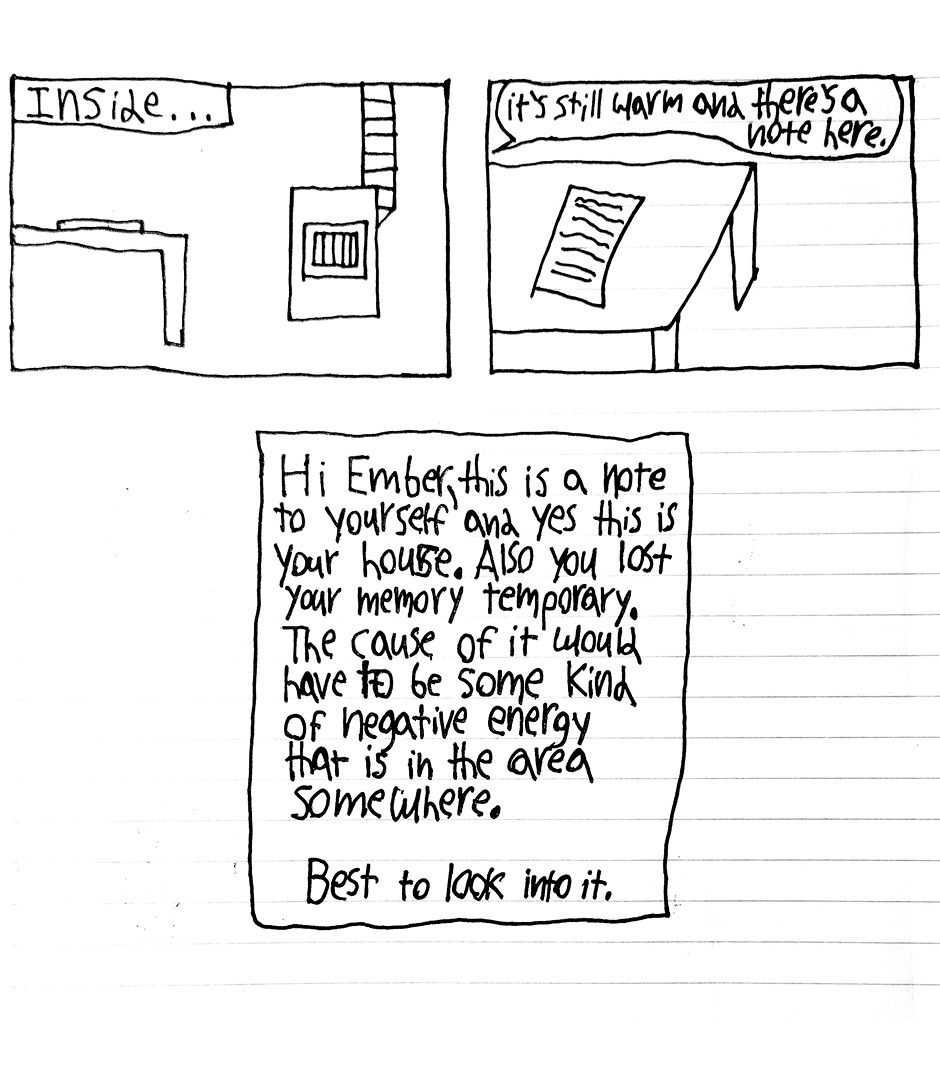 Inside...
it's still warm and there's a
note here.
Hi Ember, this is a note
to yourself and yes this is
your house. Also you lost
your memory temporary.
The cause of it would
have to be some kind
of negative energy
that is in the area
somewhere.
Best to look into it.